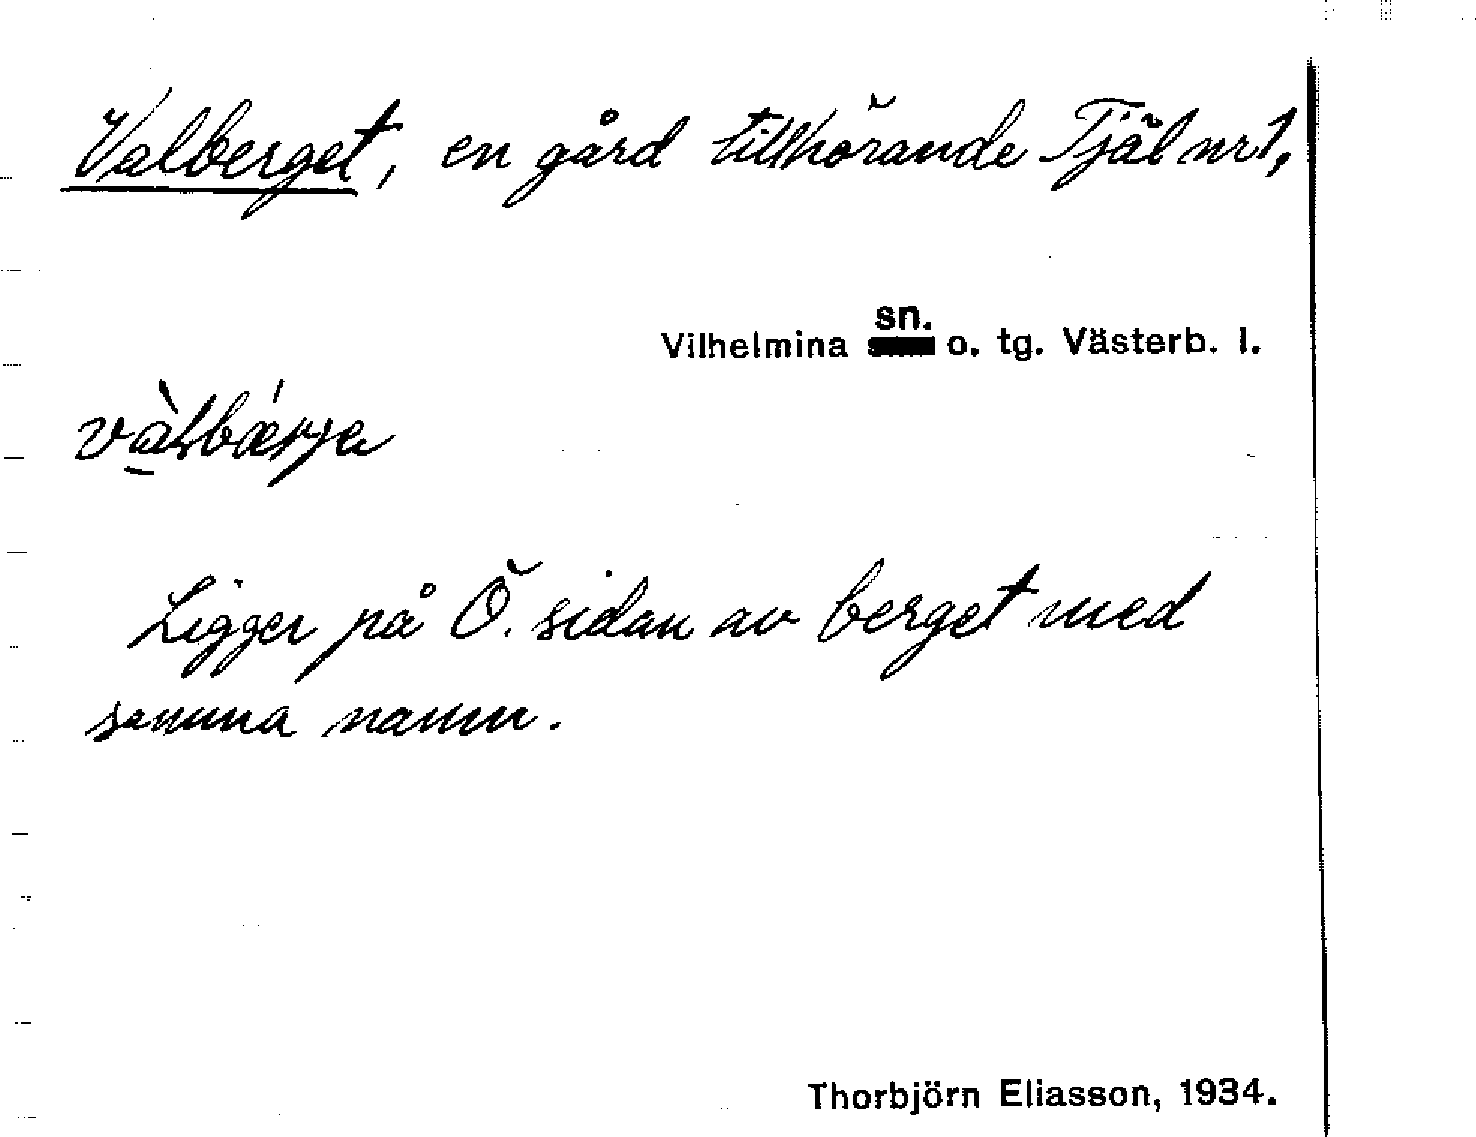 Valberget, en gård tillhörande Tjäl nr 1,
sn.
Vilhelmina o. tg. Västerb. l.
Ligger på Ö. sidan av berget med
samma namn.
Thorbjörn Eliasson, 1934.